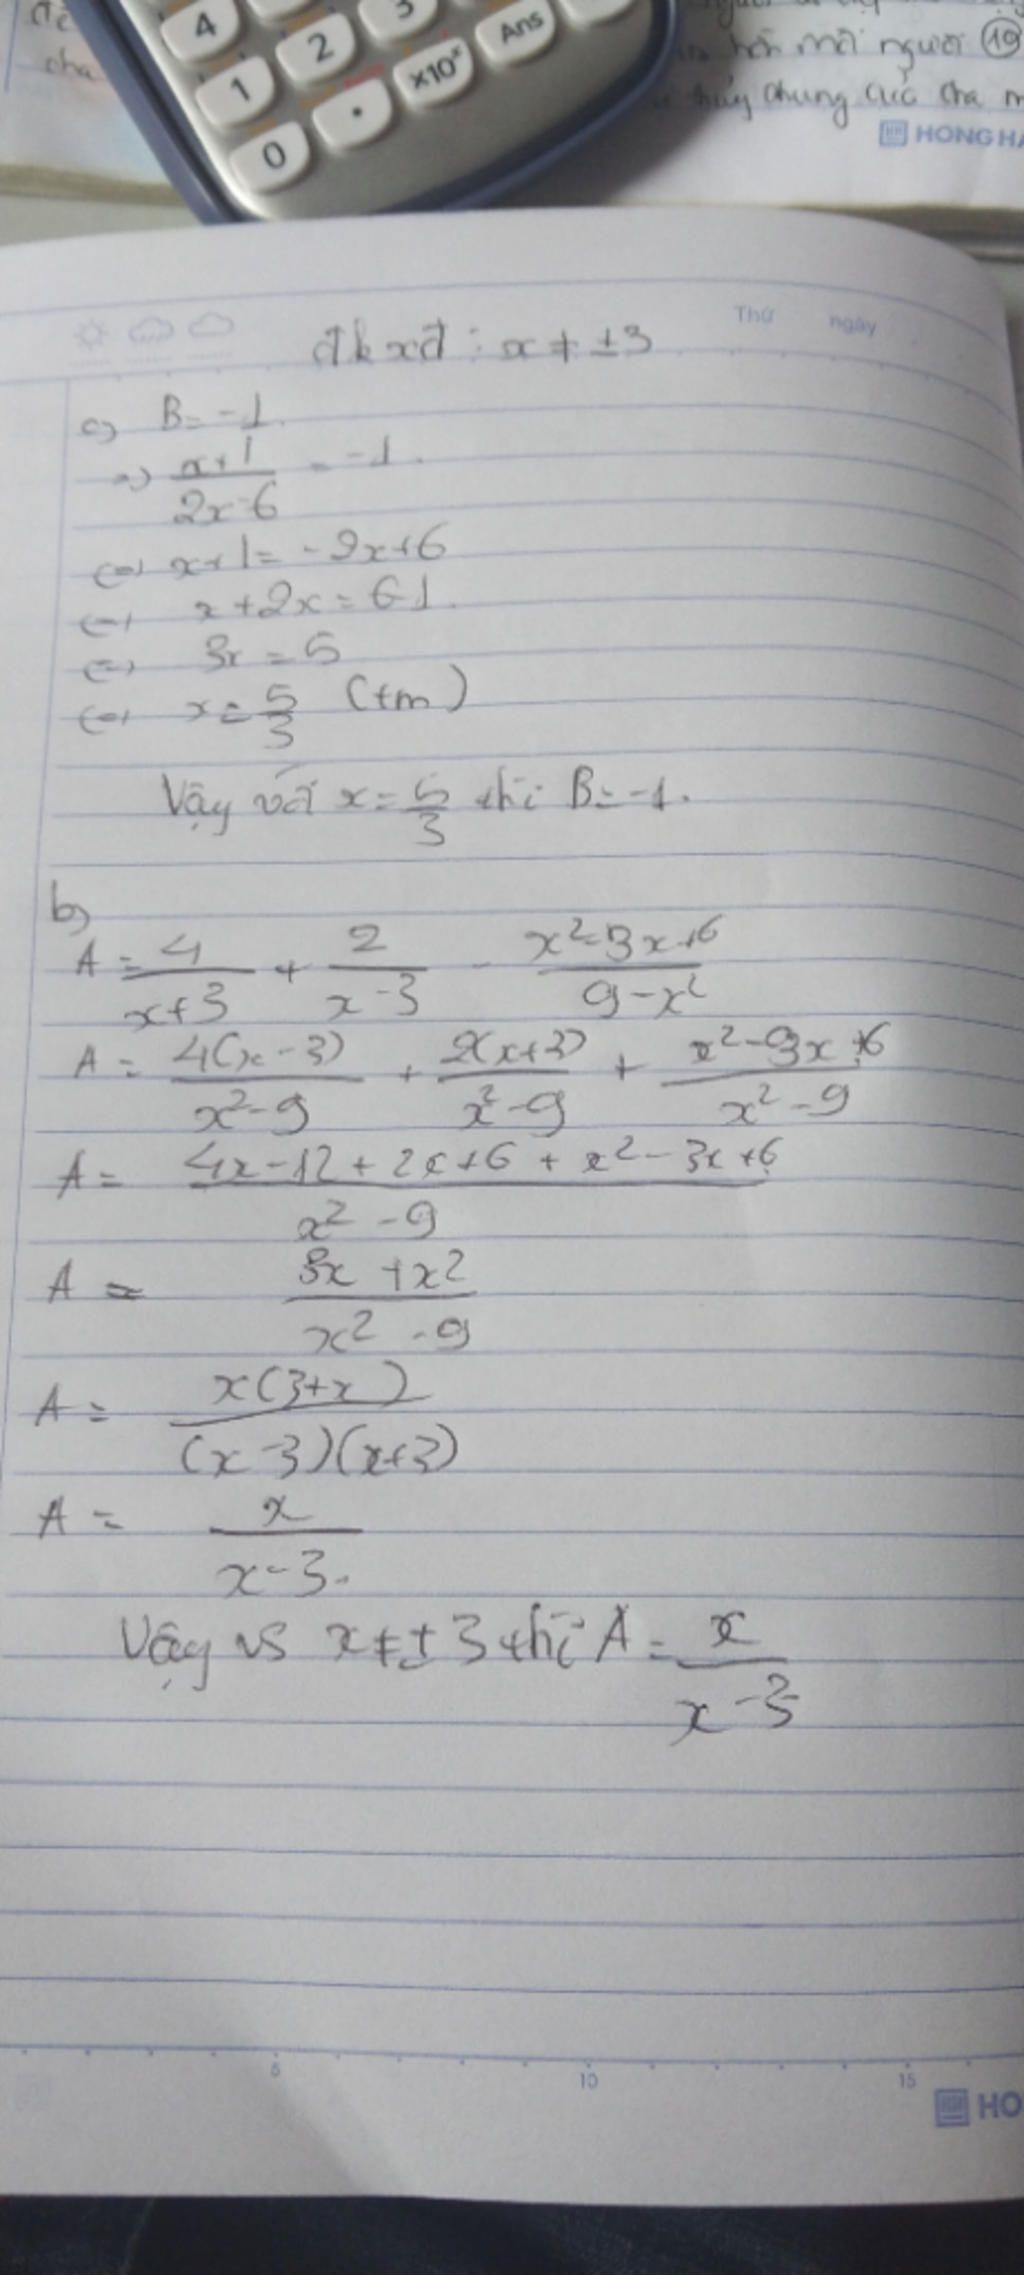 4
3
1
2
×10ˣ
Ans
0
.
hơn mỗi người 19
cha
thủy chung của cha m
HONG HA
Thứ ngày
đkxđ: x ≠ ±3
c) B = -1.
=> x+1 / 2x-6 = -1.
<=> x+1 = -2x+6
<=> x+2x = 6-1.
<=> 3x = 5
<=> x = 5/3 (tm)
Vậy với x = 5/3 thì B = -1.
b)
A = 4/x+3 + 2/x-3 - x²-3x+6/9-x²
A = 4(x-3)/x²-9 + 2(x+3)/x²-9 + x²-3x+6/x²-9
A = 4x-12+2x+6+x²-3x+6/x²-9
A = 3x+x²/x²-9
A = x(3+x)/(x-3)(x+3)
A = x/x-3.
Vậy vs x ≠ ±3 thì A = x/x-3
5 10 15
HO